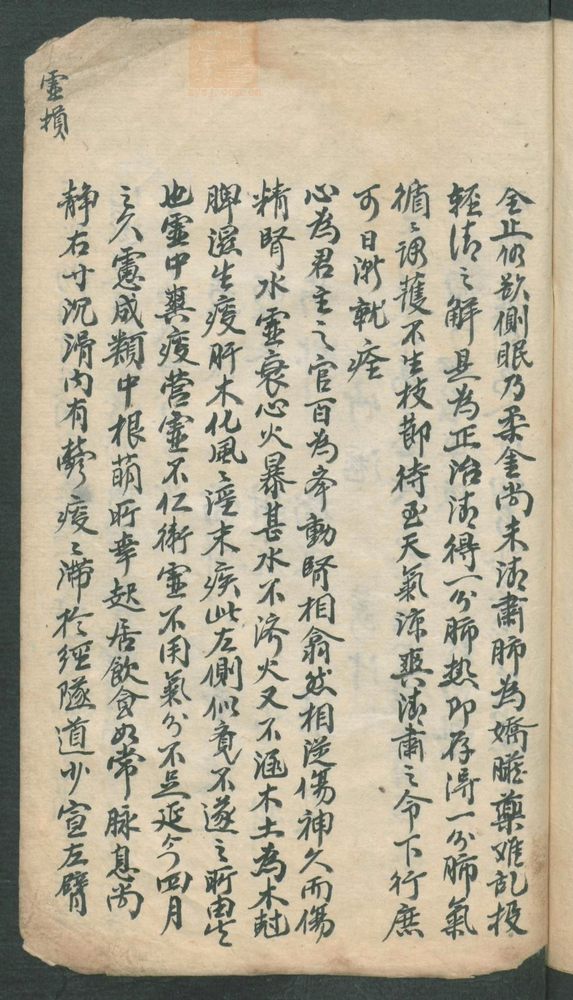 全止仍欲側眠乃柔金尚未清肅肺為嬌臟藥難乱投
輕清之解且為正治清得一分肺热即存得一分肺氣
循之調護不生枝節待至天氣凉爽清肅之令下行庶
可日漸就痊
心為君主之官百為牵動腎相翕然相从傷神久而傷
精腎水虛衰心火暴甚水不濟火又不涵木土為木尅
脾濕生痰肝木化風〻淫末疾此左側似覺不遂之所由生
也虛中兼痰營虛不仁衛虛不用氣分不足延今四月
之久慮成類中根萌所幸起居飲食如常脉息尚
静右寸沉滑内有欝痰〻滯於經隧道少宣左臂
虛損